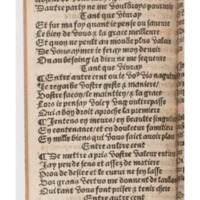 Dautre party ne me vouldroys pourvoir
Tant que vivray
Et sur ma foy quant ie pense ou saveur
Le bien de vous & la grace meilleure
Et quoy ne peult au monde plus valoir
De vous aymer ie feray mon devoir
Ou au besoing la dieu ne me sequeure
Tant que vivray
Entre autre cent ou ie
Ie regarde vostre geste & maniere
Vostre facon le maintien & la grace
Lors ie pensay voicy ung oultrepasse
Qui a boy droit aproche la premiere
Ientens en meurs en beaulte singuliere
En contenance et en doulceur familiere
En mille biens qui vous faict avoir place
Entre autre cent
De me mettre a pris vostre valeur entiere
Iay peu de sens et assez de matiere
Prou de desire et le cueur ne sen lasse
Voz grans vertus me donnent de laudace
Qui tant vous font priser & tenir chere
Entre autre cent